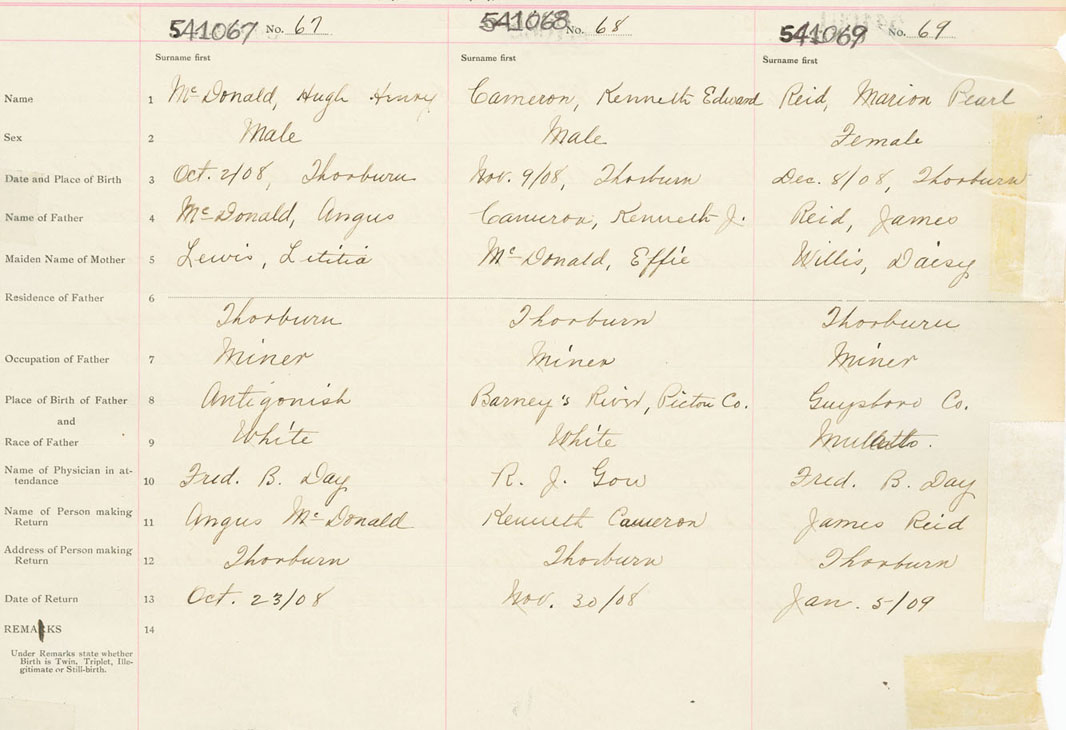 541067 No. 67 541068 No. 68 541069 No. 69
Surname first Surname first Surname first
Name 1 McDonald, Hugh Henry Cameron, Kenneth Edward Reid, Marion Pearl
Sex 2 Male Male Female
Date and Place of Birth 3 Oct. 2/08, Thorburn Nov. 9/08, Thorburn Dec. 8/08, Thorburn
Name of Father 4 McDonald, Angus Cameron, Kenneth J. Reid, James
Maiden Name of Mother 5 Lewis, Letitia McDonald, Effie Willis, Daisy
Residence of Father 6
Thorburn Thorburn Thorburn
Occupation of Father 7 Miner Miner Miner
Place of Birth of Father 8 Antigonish Barney's River, Pictou Co. Guysboro Co.
and
Race of Father 9 White White Mullatto.
Name of Physician in at-
tendance 10 Fred. B. Day R. J. Gow Fred. B. Day
Name of Person making
Return 11 Angus McDonald Kenneth Cameron James Reid
Address of Person making
Return 12 Thorburn Thorburn Thorburn
Date of Return 13 Oct. 23/08 Nov. 30/08 Jan. 5/09
REMARKS 14
Under Remarks state whether
Birth is Twin, Triplet, Ille-
gitimate or Still-birth.